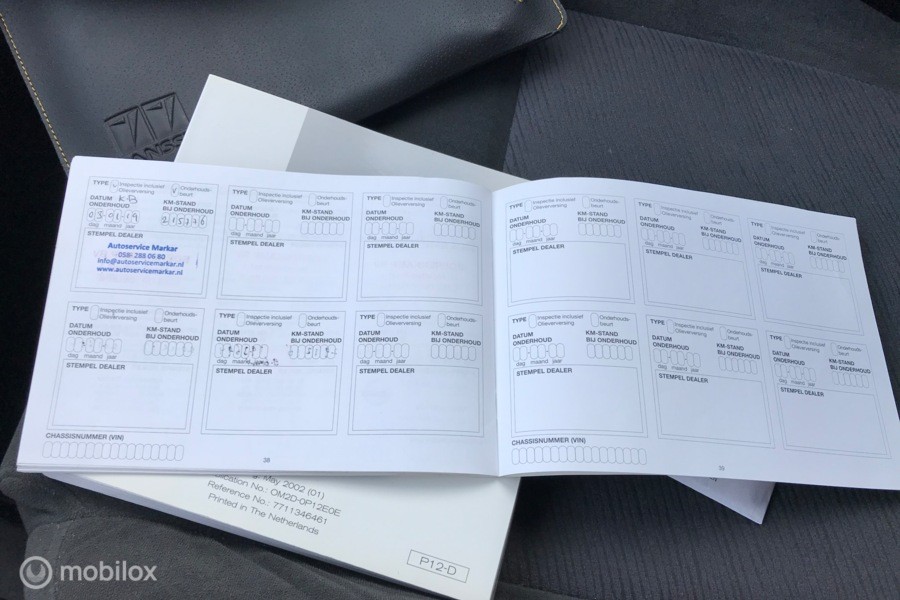 TYPE Inspectie inclusief Olieverversing Onderhouds-beurt
DATUM ONDERHOUD KM-STAND BIJ ONDERHOUD
dag maand jaar
STEMPEL DEALER
Autoservice Markar
058- 288 06 80
info@autoservicemarkar.nl
www.autoservicemarkar.nl
TYPE Inspectie inclusief Olieverversing Onderhouds-beurt
DATUM ONDERHOUD KM-STAND BIJ ONDERHOUD
dag maand jaar
STEMPEL DEALER
TYPE Inspectie inclusief Olieverversing Onderhouds-beurt
DATUM ONDERHOUD KM-STAND BIJ ONDERHOUD
dag maand jaar
STEMPEL DEALER
TYPE Inspectie inclusief Olieverversing Onderhouds-beurt
DATUM ONDERHOUD KM-STAND BIJ ONDERHOUD
dag maand jaar
STEMPEL DEALER
TYPE Inspectie inclusief Olieverversing Onderhouds-beurt
DATUM ONDERHOUD KM-STAND BIJ ONDERHOUD
dag maand jaar
STEMPEL DEALER
TYPE Inspectie inclusief Olieverversing Onderhouds-beurt
DATUM ONDERHOUD KM-STAND BIJ ONDERHOUD
dag maand jaar
STEMPEL DEALER
CHASSISNUMMER (VIN)
38
TYPE Inspectie inclusief Olieverversing Onderhouds-beurt
DATUM ONDERHOUD KM-STAND BIJ ONDERHOUD
dag maand jaar
STEMPEL DEALER
TYPE Inspectie inclusief Olieverversing Onderhouds-beurt
DATUM ONDERHOUD KM-STAND BIJ ONDERHOUD
dag maand jaar
STEMPEL DEALER
TYPE Inspectie inclusief Olieverversing Onderhouds-beurt
DATUM ONDERHOUD KM-STAND BIJ ONDERHOUD
dag maand jaar
STEMPEL DEALER
TYPE Inspectie inclusief Olieverversing Onderhouds-beurt
DATUM ONDERHOUD KM-STAND BIJ ONDERHOUD
dag maand jaar
STEMPEL DEALER
TYPE Inspectie inclusief Olieverversing Onderhouds-beurt
DATUM ONDERHOUD KM-STAND BIJ ONDERHOUD
dag maand jaar
STEMPEL DEALER
TYPE Inspectie inclusief Olieverversing Onderhouds-beurt
DATUM ONDERHOUD KM-STAND BIJ ONDERHOUD
dag maand jaar
STEMPEL DEALER
CHASSISNUMMER (VIN)
39
May 2002 (01)
No.: OM2D-0P12E0E
Reference No.: 7711346461
Printed in The Netherlands
P12-D
mobilox